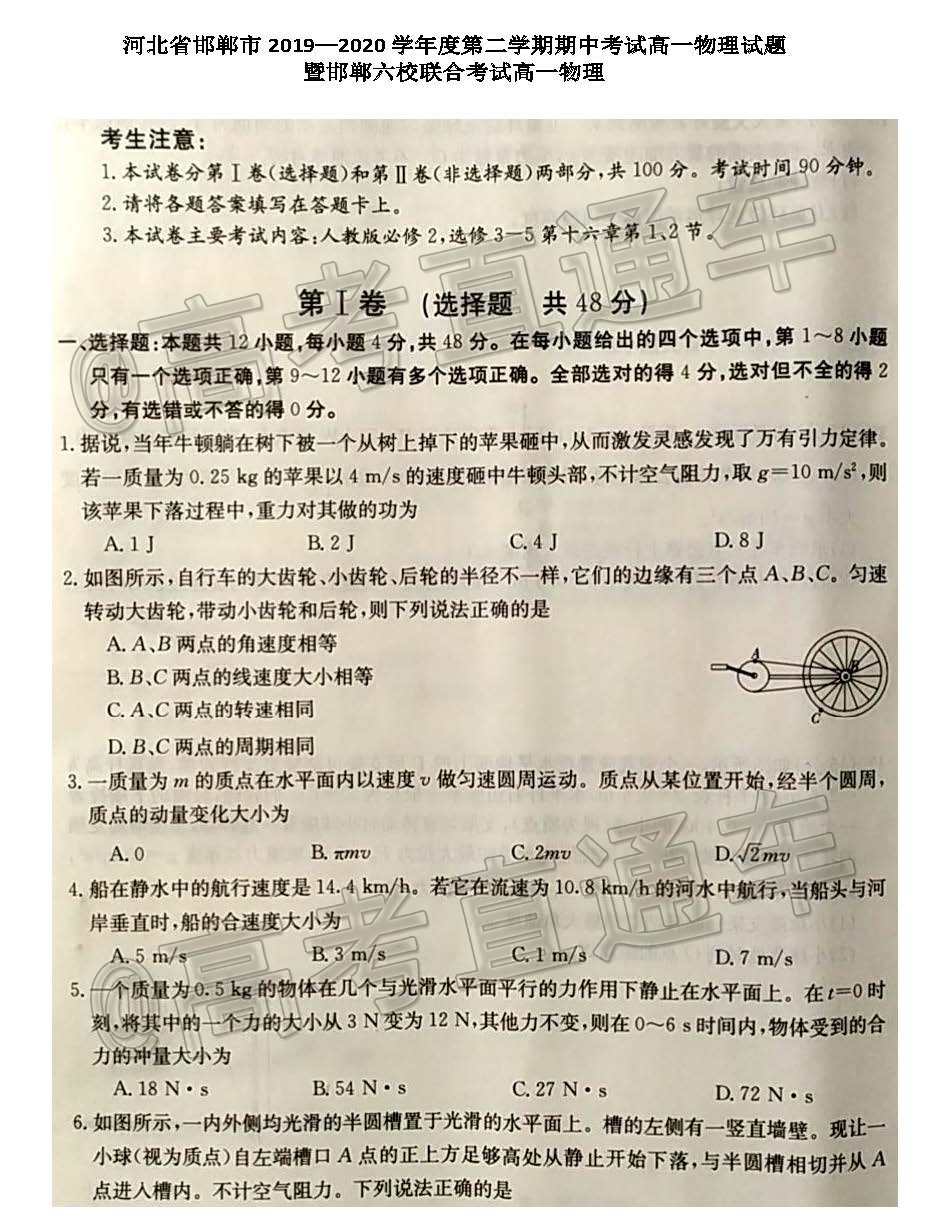 河北省邯郸市 2019—2020 学年度第二学期期中考试高一物理试题
暨邯郸六校联合考试高一物理
考生注意:
1. 本试卷分第Ⅰ卷(选择题)和第Ⅱ卷(非选择题)两部分,共 100 分。考试时间 90 分钟。
2. 请将各题答案填写在答题卡上。
3. 本试卷主要考试内容:人教版必修 2,选修 3-5 第十六章第 1、2 节。
第Ⅰ卷 (选择题 共 48 分)
一、选择题:本题共 12 小题,每小题 4 分,共 48 分。在每小题给出的四个选项中,第 1~8 小题
只有一个选项正确,第 9~12 小题有多个选项正确。全部选对的得 4 分,选对但不全的得 2
分,有选错或不答的得 0 分。
1. 据说,当年牛顿躺在树下被一个从树上掉下的苹果砸中,从而激发灵感发现了万有引力定律。
若一质量为 0.25 kg 的苹果以 4 m/s 的速度砸中牛顿头部,不计空气阻力,取 g=10 m/s²,则
该苹果下落过程中,重力对其做的功为
A. 1 J B. 2 J C. 4 J D. 8 J
2. 如图所示,自行车的大齿轮、小齿轮、后轮的半径不一样,它们的边缘有三个点 A、B、C。匀速
转动大齿轮,带动小齿轮和后轮,则下列说法正确的是
A. A、B 两点的角速度相等
B. B、C 两点的线速度大小相等
C. A、C 两点的转速相同
D. B、C 两点的周期相同
A
B
C
3. 一质量为 m 的质点在水平面内以速度 v 做匀速圆周运动。质点从某位置开始,经半个圆周,
质点的动量变化大小为
A. 0 B. πmv C. 2mv D. √2mv
4. 船在静水中的航行速度是 14.4 km/h。若它在流速为 10.8 km/h 的河水中航行,当船头与河
岸垂直时,船的合速度大小为
A. 5 m/s B. 3 m/s C. 1 m/s D. 7 m/s
5. 一个质量为 0.5 kg 的物体在几个与光滑水平面平行的力作用下静止在水平面上。在 t=0 时
刻,将其中的一个力的大小从 3 N 变为 12 N,其他力不变,则在 0~6 s 时间内,物体受到的合
力的冲量大小为
A. 18 N·s B. 54 N·s C. 27 N·s D. 72 N·s
6. 如图所示,一内外侧均光滑的半圆槽置于光滑的水平面上。槽的左侧有一竖直墙壁。现让一
小球(视为质点)自左端槽口 A 点的正上方足够高处从静止开始下落,与半圆槽相切并从 A
点进入槽内。不计空气阻力。下列说法正确的是
@高考直通车
@高考直通车